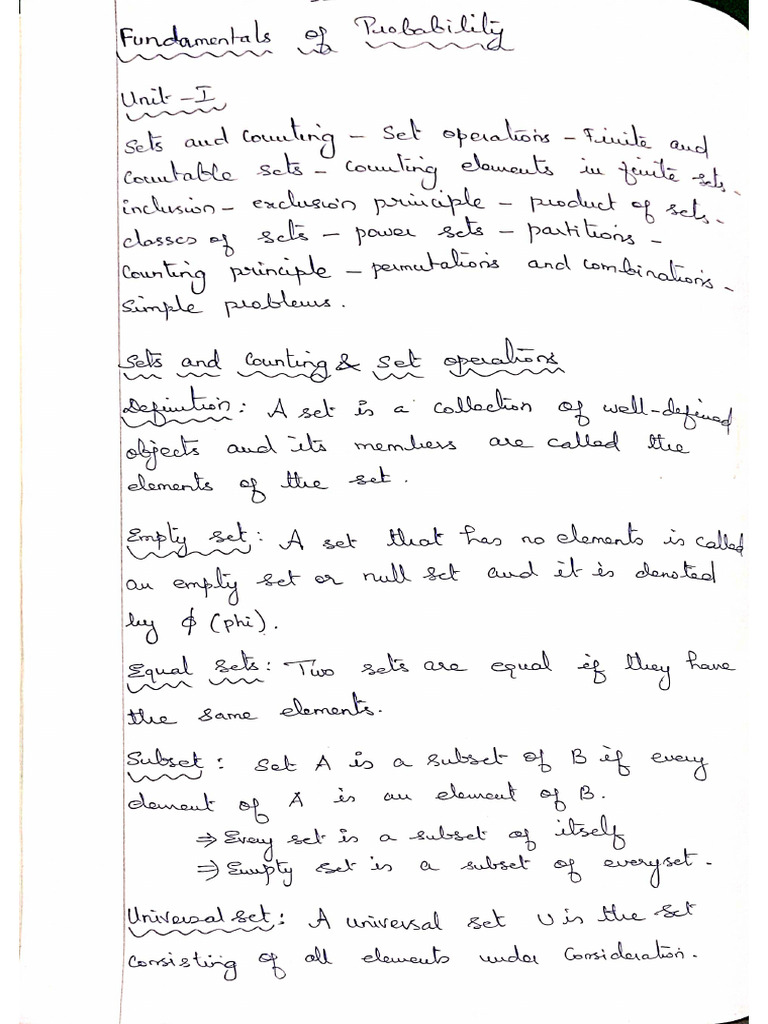 Fundamentals of Probability
Unit - I
Sets and Counting - Set operations - Finite and
Countable sets - Counting elements in finite sets -
inclusion - exclusion principle - product of sets -
classes of sets - power sets - partitions -
Counting principle - permutations and combinations -
Simple problems.
Sets and Counting & Set operations
Definition: A set is a collection of well-defined
objects and its members are called the
elements of the set.
Empty set: A set that has no elements is called
an empty set or null set and it is denoted
by ϕ (phi).
Equal Sets: Two sets are equal if they have
the same elements.
Subset: Set A is a subset of B if every
element of A is an element of B.
⇒ Every set is a subset of itself
⇒ Empty set is a subset of every set.
Universal set: A universal set U is the set
consisting of all elements under Consideration.